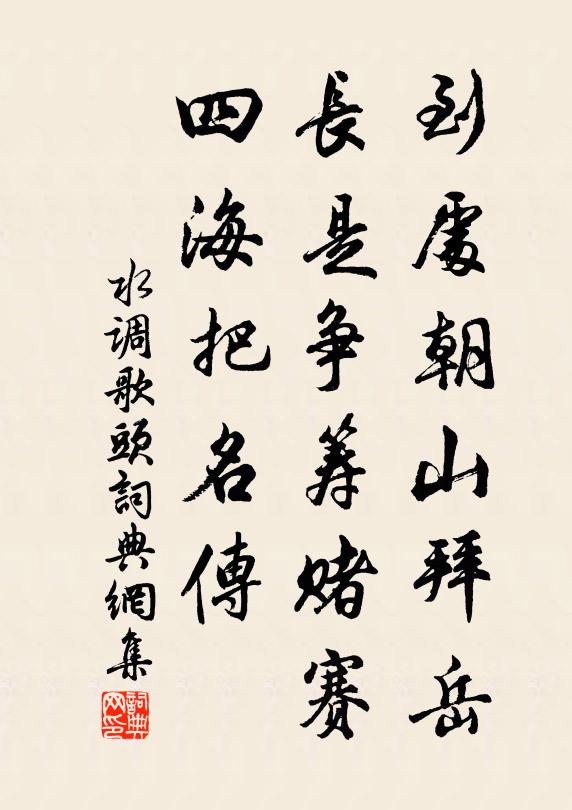 到處朝山拜岳
長是爭筹賭賽
四海把名傳
水调歌頭詞典網集
詞典網印